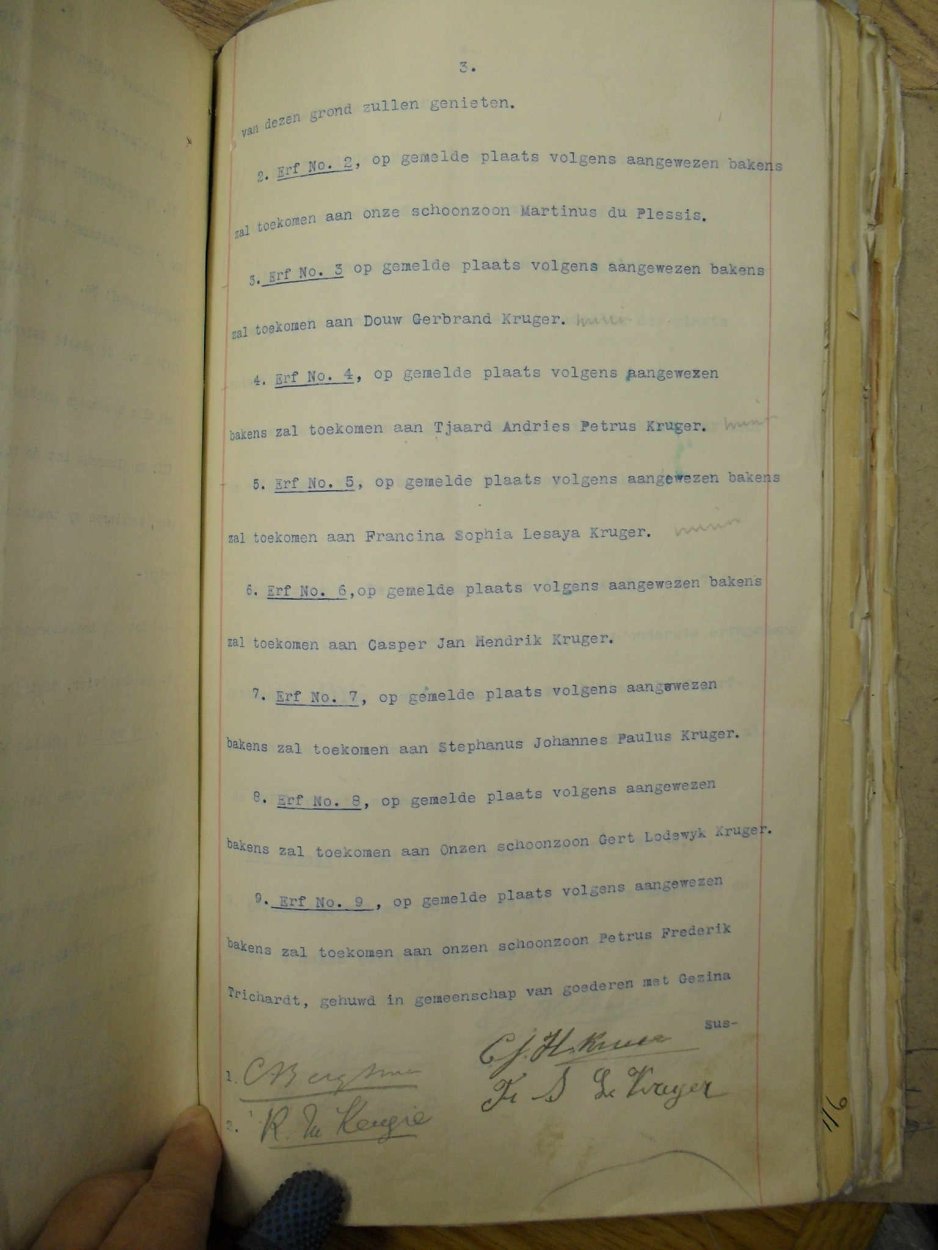 3.
van dezen grond zullen genieten.
2. Erf No. 2, op gemelde plaats volgens aangewezen bakens
zal toekomen aan onze schoonzoon Martinus du Plessis.
3. Erf No. 3 op gemelde plaats volgens aangewezen bakens
zal toekomen aan Douw Gerbrand Kruger.
4. Erf No. 4, op gemelde plaats volgens aangewezen
bakens zal toekomen aan Tjaard Andries Petrus Kruger.
5. Erf No. 5, op gemelde plaats volgens aangewezen bakens
zal toekomen aan Francina Sophia Lesaya Kruger.
6. Erf No. 6,op gemelde plaats volgens aangewezen bakens
zal toekomen aan Casper Jan Hendrik Kruger.
7. Erf No. 7, op gemelde plaats volgens aangewezen
bakens zal toekomen aan Stephanus Johannes Paulus Kruger.
8. Erf No. 8, op gemelde plaats volgens aangewezen
bakens zal toekomen aan Onzen schoonzoon Gert Lodewyk Kruger.
9. Erf No. 9 , op gemelde plaats volgens aangewezen
bakens zal toekomen aan onzen schoonzoon Petrus Frederik
Trichardt, gehuwd in gemeenschap van goederen met Gezina
Sus-
C. J. H. Kruger
1.
Fr S Le Kruger
2.